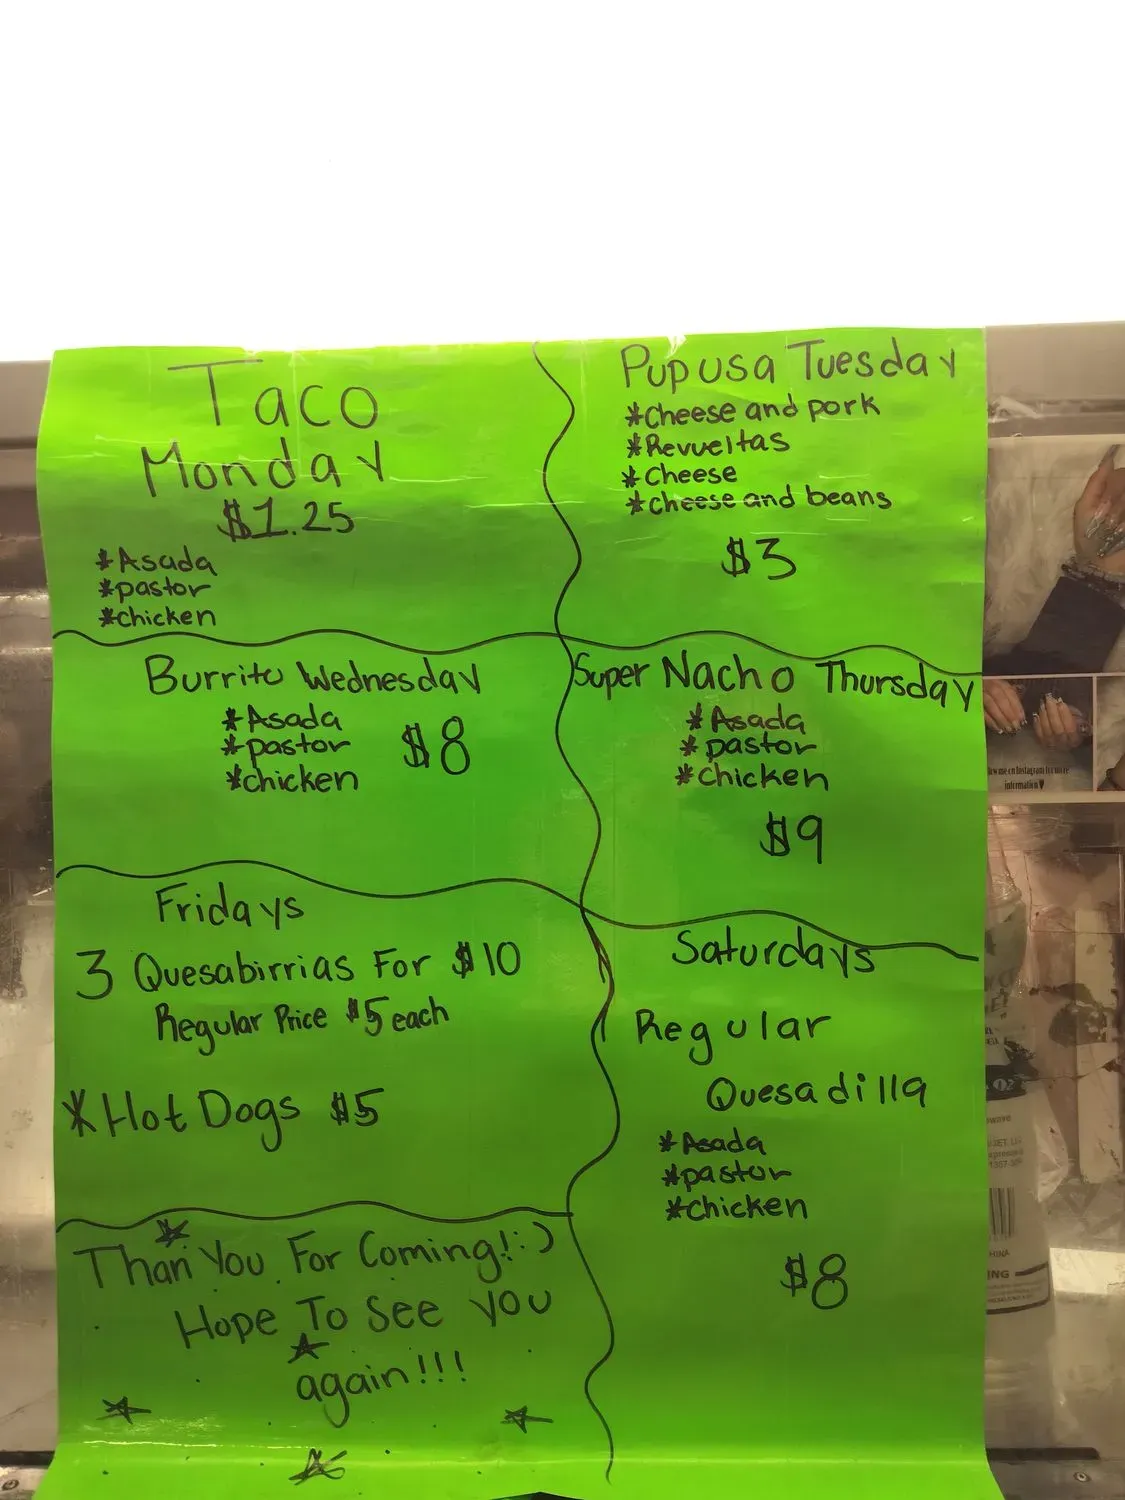 Taco
Monday
$1.25
*Asada
*pastor
*chicken
Pupusa Tuesday
*Cheese and pork
*Revueltas
*Cheese
*Cheese and beans
$3
Burrito Wednesday
*Asada
*pastor
*chicken
$8
Super Nacho Thursday
*Asada
*pastor
*chicken
$9
Fridays
3 Quesabirrias For $10
Regular Price $5 each
*Hot Dogs $5
Saturdays
Regular
Quesadilla
*Asada
*pastor
*chicken
$8
Than You For Coming! :)
Hope To See you
again!!!
me on Instagram for more
information